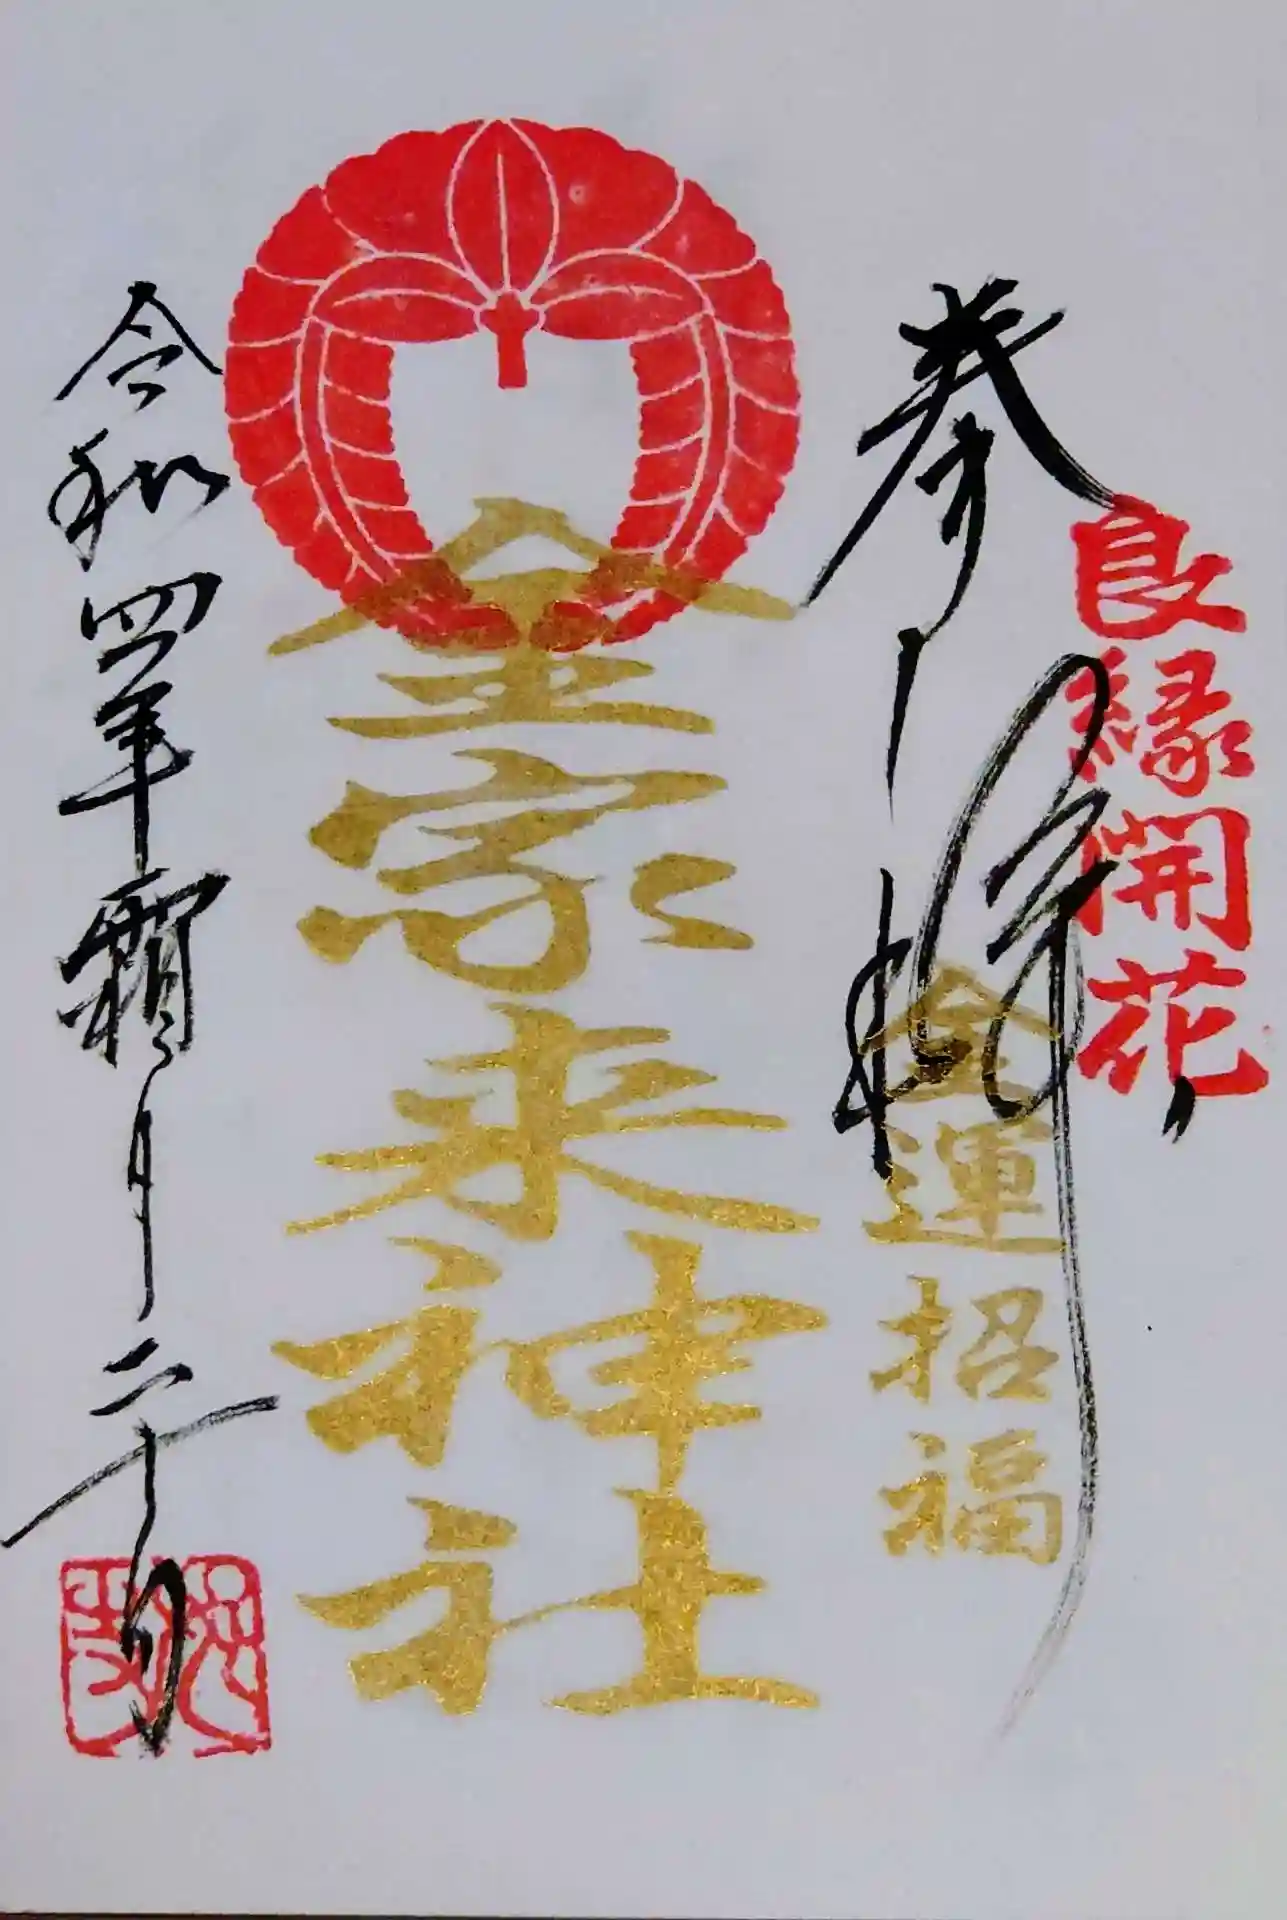 良縁開花
奉拝
金運招福
金家来神社
令和四年霜月二十日